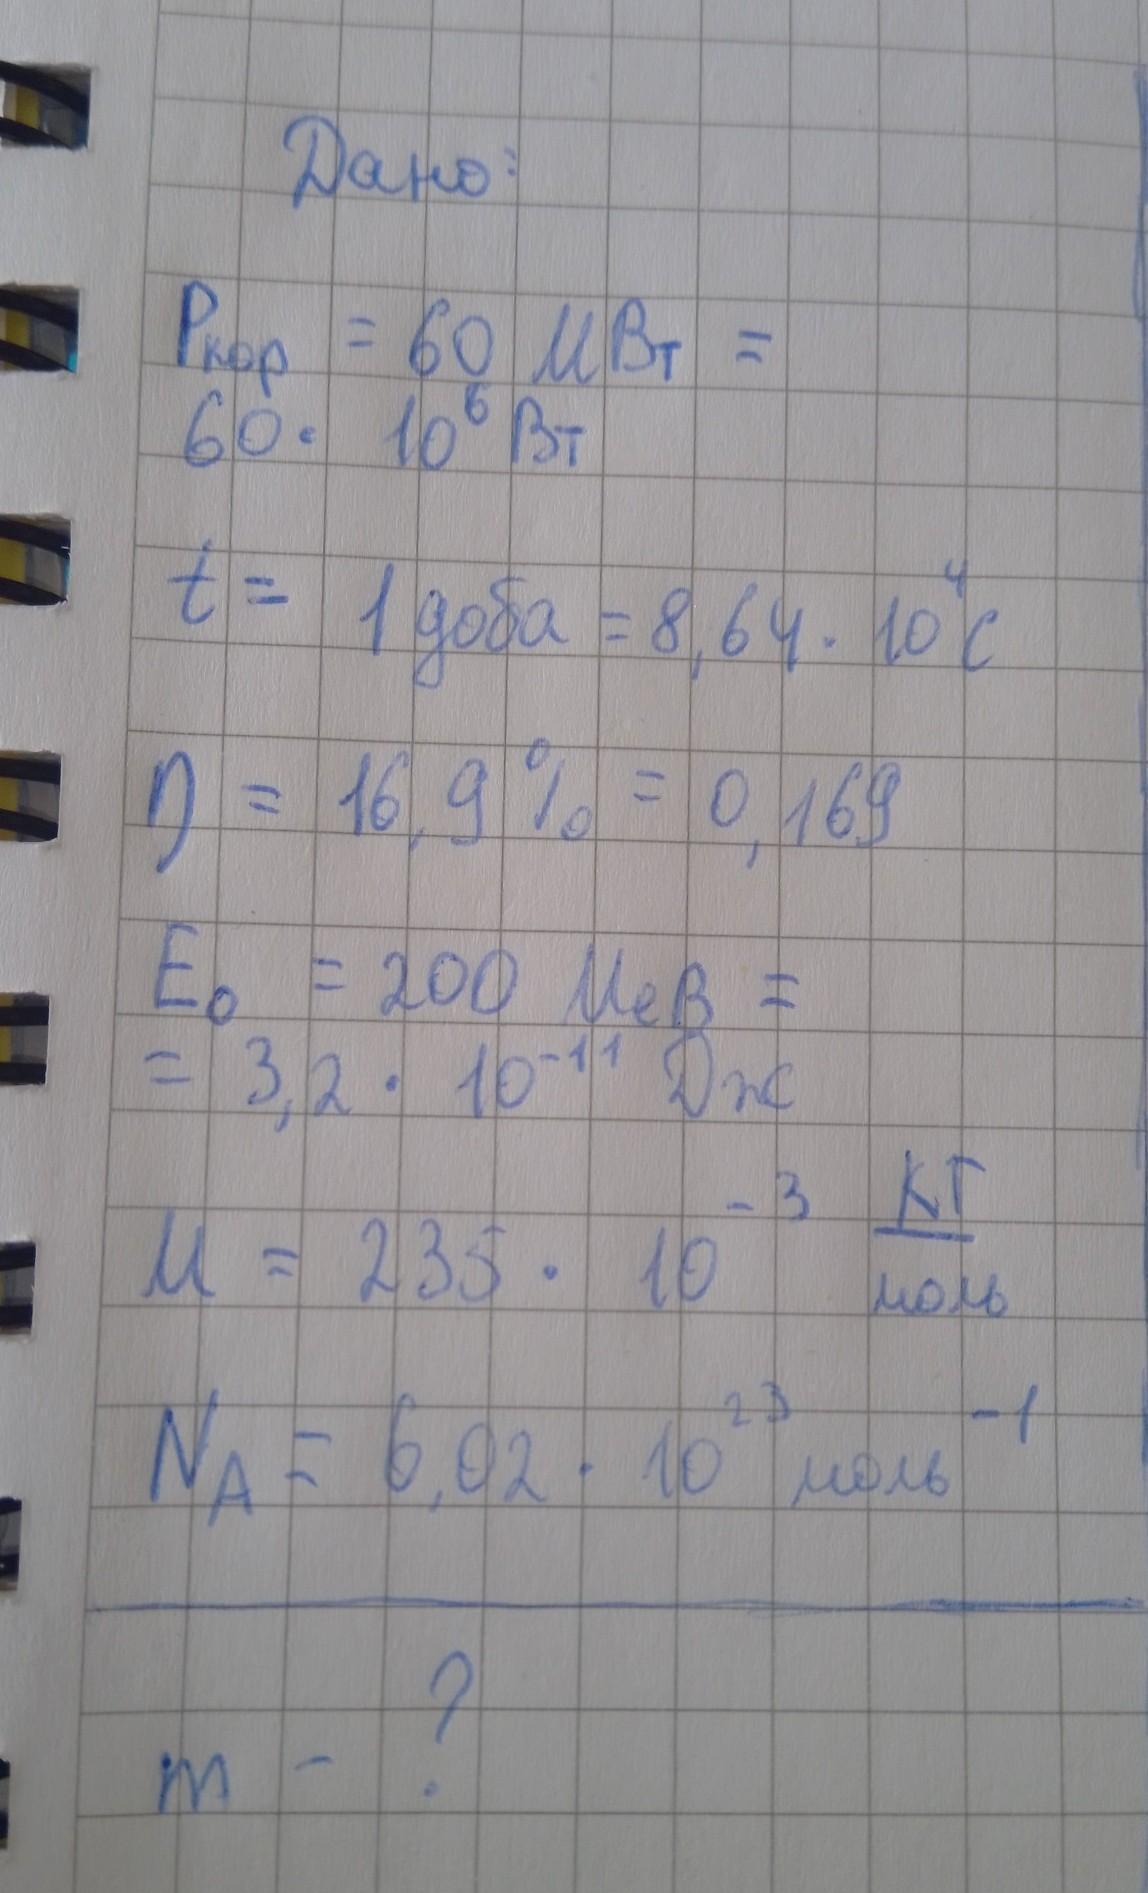 Дано:
Pкор = 60 МВт =
60 · 10⁶ Вт
t = 1 доба = 8,64 · 10⁴ с
η = 16,9 % = 0,169
E₀ = 200 МеВ =
= 3,2 · 10⁻¹¹ Дж
М = 235 · 10⁻³ кг/моль
N_A = 6,02 · 10²³ моль⁻¹
m - ?